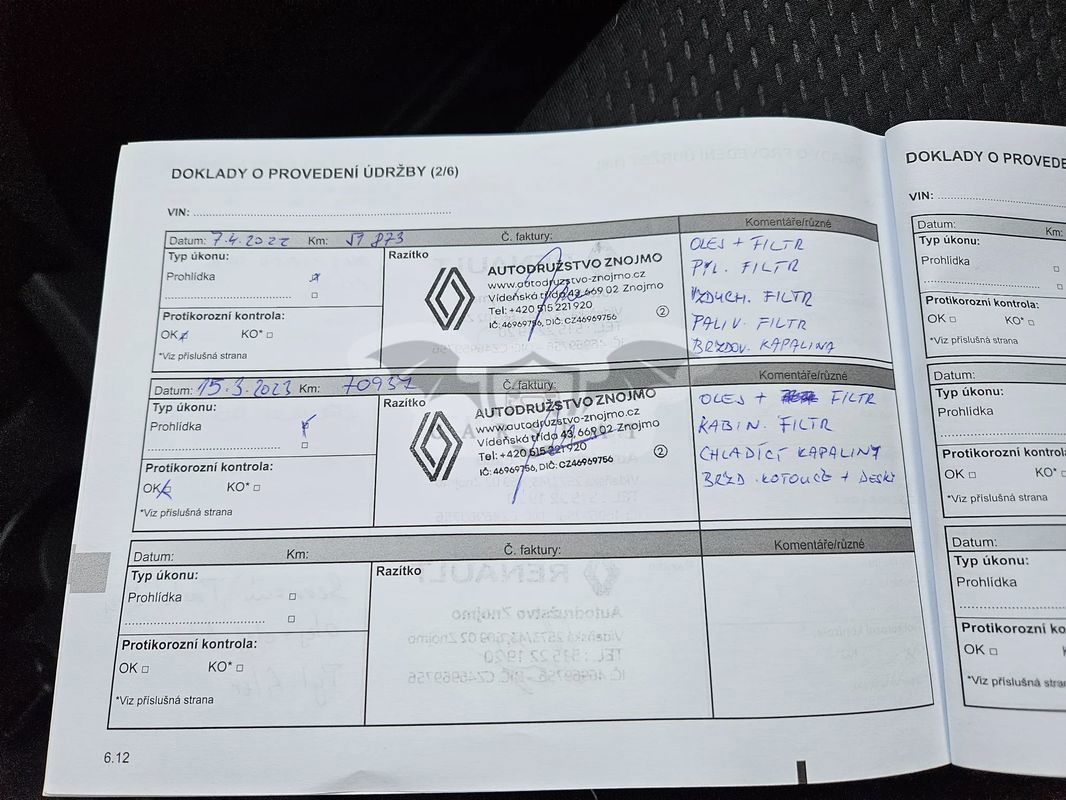 DOKLADY O PROVEDENÍ ÚDRŽBY (2/6)
VIN:
Datum: 7.4.2022 Km: 51 873 Č. faktury: Komentáře/různé
Typ úkonu:
Prohlídka
Protikorozní kontrola:
OK KO*
*Viz příslušná strana
Razítko
AUTODRUŽSTVO ZNOJMO
www.autodruzstvo-znojmo.cz
Vídeňská třída 43, 669 02 Znojmo
Tel: +420 515 221 920
IČ: 46969756, DIČ: CZ46969756
2
OLEJ + FILTR
PYL. FILTR
VZDUCH. FILTR
PALIV. FILTR
BRZDOV. KAPALINA
Datum: 15.3.2023 Km: 70937 Č. faktury: Komentáře/různé
Typ úkonu:
Prohlídka
Protikorozní kontrola:
OK KO*
*Viz příslušná strana
Razítko
AUTODRUŽSTVO ZNOJMO
www.autodruzstvo-znojmo.cz
Vídeňská třída 43, 669 02 Znojmo
Tel: +420 515 221 920
IČ: 46969756, DIČ: CZ46969756
2
OLEJ + FILTR
KABIN. FILTR
CHLADÍCÍ KAPALINY
BRZD. KOTOUČE + DESKY
Datum: Km: Č. faktury: Komentáře/různé
Typ úkonu:
Prohlídka
Protikorozní kontrola:
OK KO*
*Viz příslušná strana
Razítko
6.12
DOKLADY O PROVEDE
VIN:
Datum: Km:
Typ úkonu:
Prohlídka
Protikorozní kontrola:
OK KO*
*Viz příslušná strana
Datum:
Typ úkonu:
Prohlídka
Protikorozní kontrola:
OK KO*
*Viz příslušná strana
Datum:
Typ úkonu:
Prohlídka
Protikorozní ko
OK
*Viz příslušná stra